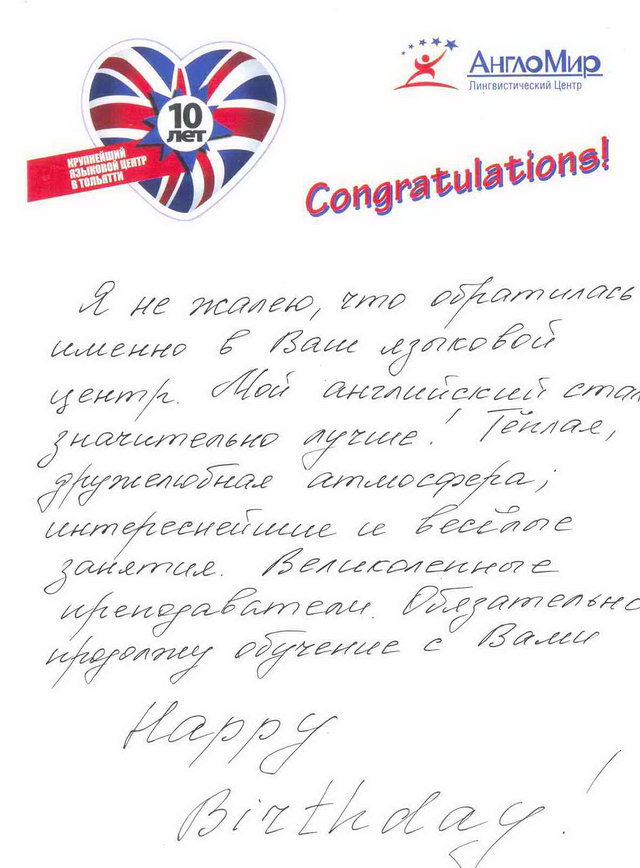 10
лет
КРУПНЕЙШИЙ
ЯЗЫКОВОЙ ЦЕНТР
В ТОЛЬЯТТИ
АнглоМир
Лингвистический Центр
Congratulations!
Я не жалею, что обратилась
именно в Ваш языковой
центр. Мой английский стал
значительно лучше! Тёплая,
дружелюбная атмосфера;
интереснейшие и весёлые
занятия. Великолепные
преподаватели. Обязательно
продолжу обучение с Вами
Happy
Birthday!